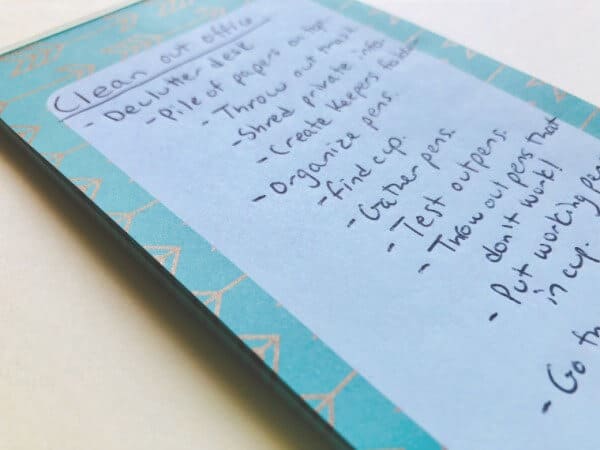 Clean out office
- Declutter desk
- Pile of papers on top.
- Throw out trash
- Shred private info.
- Create keepers folder
- Organize pens.
- Find cup.
- Gather pens.
- Test out pens.
- Throw out pens that
don't work!
- Put working pens
in cup.
- Go